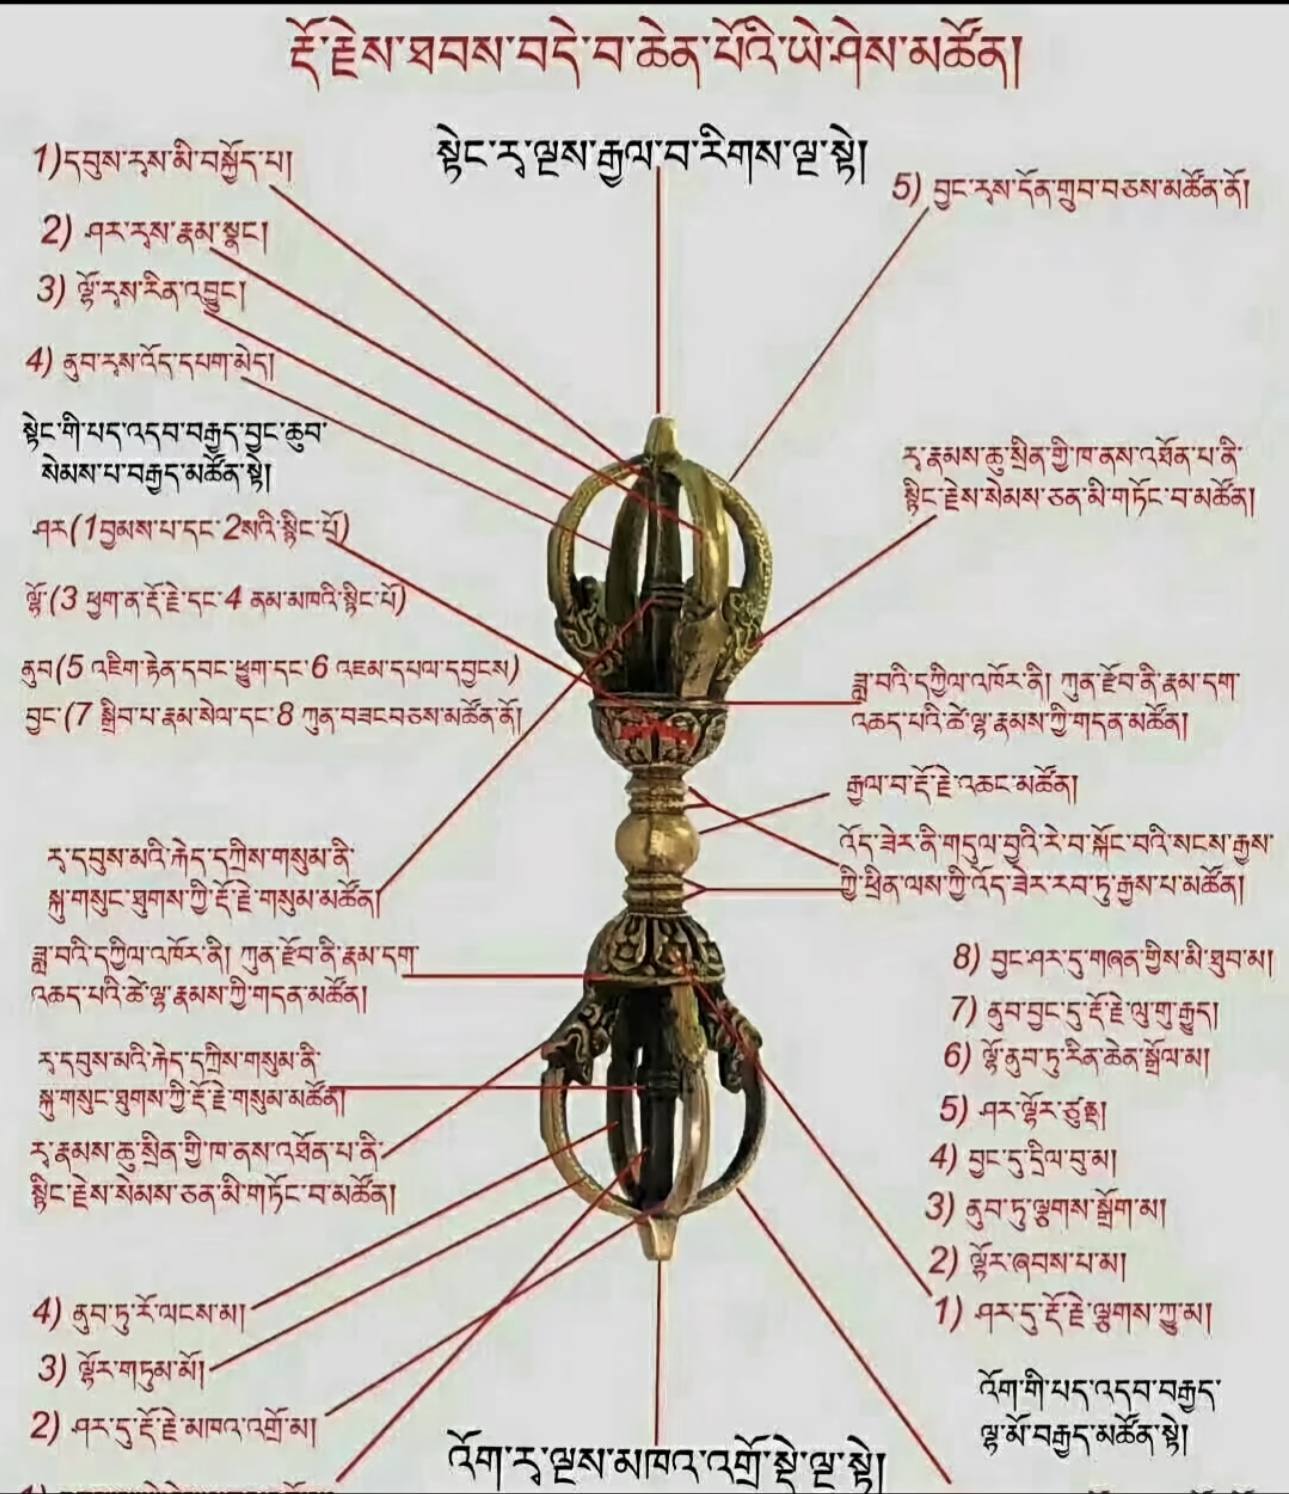 རྡོ་རྗེས་ཐབས་བདེ་བ་ཆེན་པོའི་ཡེ་ཤེས་མཚོན།
སྟེང་རྭ་ལྔས་རྒྱལ་བ་རིགས་ལྔ་སྟེ།
1)དབུས་རྭས་མི་བསྐྱོད་པ།
2) ཤར་རྭས་རྣམ་སྣང།
3) ལྷོ་རྭས་རིན་འབྱུང།
4) ནུབ་རྭས་འོད་དཔག་མེད།
5) བྱང་རྭས་དོན་གྲུབ་བཅས་མཚོན་ནོ།
སྟེང་གི་པད་འདབ་བརྒྱད་བྱང་ཆུབ་
སེམས་པ་བརྒྱད་མཚོན་སྟེ།
ཤར(1བྱམས་པ་དང་2སའི་སྙིང་པོ)
ལྷོ་(3 ཕྱག་ན་རྡོ་རྗེ་དང་4 ནམ་མཁའི་སྙིང་པོ)
ནུབ(5 འཇིག་རྟེན་དབང་ཕྱུག་དང་6 འཇམ་དཔལ་དབྱངས)
བྱང་(7 སྒྲིབ་པ་རྣམ་སེལ་དང་8 ཀུན་བཟངབཅས་མཚོན་ནོ།
རྭ་རྣམས་ཆུ་སྲིན་གྱི་ཁ་ནས་འཐོན་པ་ནི་
སྙིང་རྗེས་སེམས་ཅན་མི་གཏོང་བ་མཚོན།
ཟླ་བའི་དཀྱིལ་འཁོར་ནི། ཀུན་རྫོབ་ནི་རྣམ་དག་
འཆད་པའི་ཚེ་ལྷ་རྣམས་ཀྱི་གདན་མཚོན།
རྒྱལ་བ་རྡོ་རྗེ་འཆང་མཚོན།
འོད་ཟེར་ནི་གདུལ་བྱའི་རེ་བ་སྐོང་བའི་སངས་རྒྱས་
ཀྱི་ཕྲིན་ལས་ཀྱི་འོད་ཟེར་རབ་ཏུ་རྒྱས་པ་མཚོན།
རྭ་དབུས་མའི་རྐེད་དཀྲིས་གསུམ་ནི་
སྐུ་གསུང་ཐུགས་ཀྱི་རྡོ་རྗེ་གསུམ་མཚོན།
ཟླ་བའི་དཀྱིལ་འཁོར་ནི། ཀུན་རྫོབ་ནི་རྣམ་དག་
འཆད་པའི་ཚེ་ལྷ་རྣམས་ཀྱི་གདན་མཚོན།
རྭ་དབུས་མའི་རྐེད་དཀྲིས་གསུམ་ནི་
སྐུ་གསུང་ཐུགས་ཀྱི་རྡོ་རྗེ་གསུམ་མཚོན།
རྭ་རྣམས་ཆུ་སྲིན་གྱི་ཁ་ནས་འཐོན་པ་ནི་
སྙིང་རྗེས་སེམས་ཅན་མི་གཏོང་བ་མཚོན།
4) ནུབ་ཏུ་རོ་ལངས་མ།
3) ལྷོར་གཏུམ་མོ།
2) ཤར་དུ་རྡོ་རྗེ་མཁའ་འགྲོ་མ།
8) བྱང་ཤར་དུ་གཞན་གྱིས་མི་ཐུབ་མ།
7) ནུབ་བྱང་དུ་རྡོ་རྗེ་ལུ་གུ་རྒྱུད།
6) ལྷོ་ནུབ་ཏུ་རིན་ཆེན་སྒྲོལ་མ།
5) ཤར་ལྷོར་ཙུནྡ།
4) བྱང་དུ་དྲིལ་བུ་མ།
3) ནུབ་ཏུ་ལྕགས་སྒྲོག་མ།
2) ལྷོར་ཞབས་པ་མ།
1) ཤར་དུ་རྡོ་རྗེ་ལྕགས་ཀྱུ་མ།
འོག་གི་པད་འདབ་བརྒྱད་
ལྷ་མོ་བརྒྱད་མཚོན་སྟེ།
འོག་རྭ་ལྔས་མཁའ་འགྲོ་སྡེ་ལྔ་སྟེ།